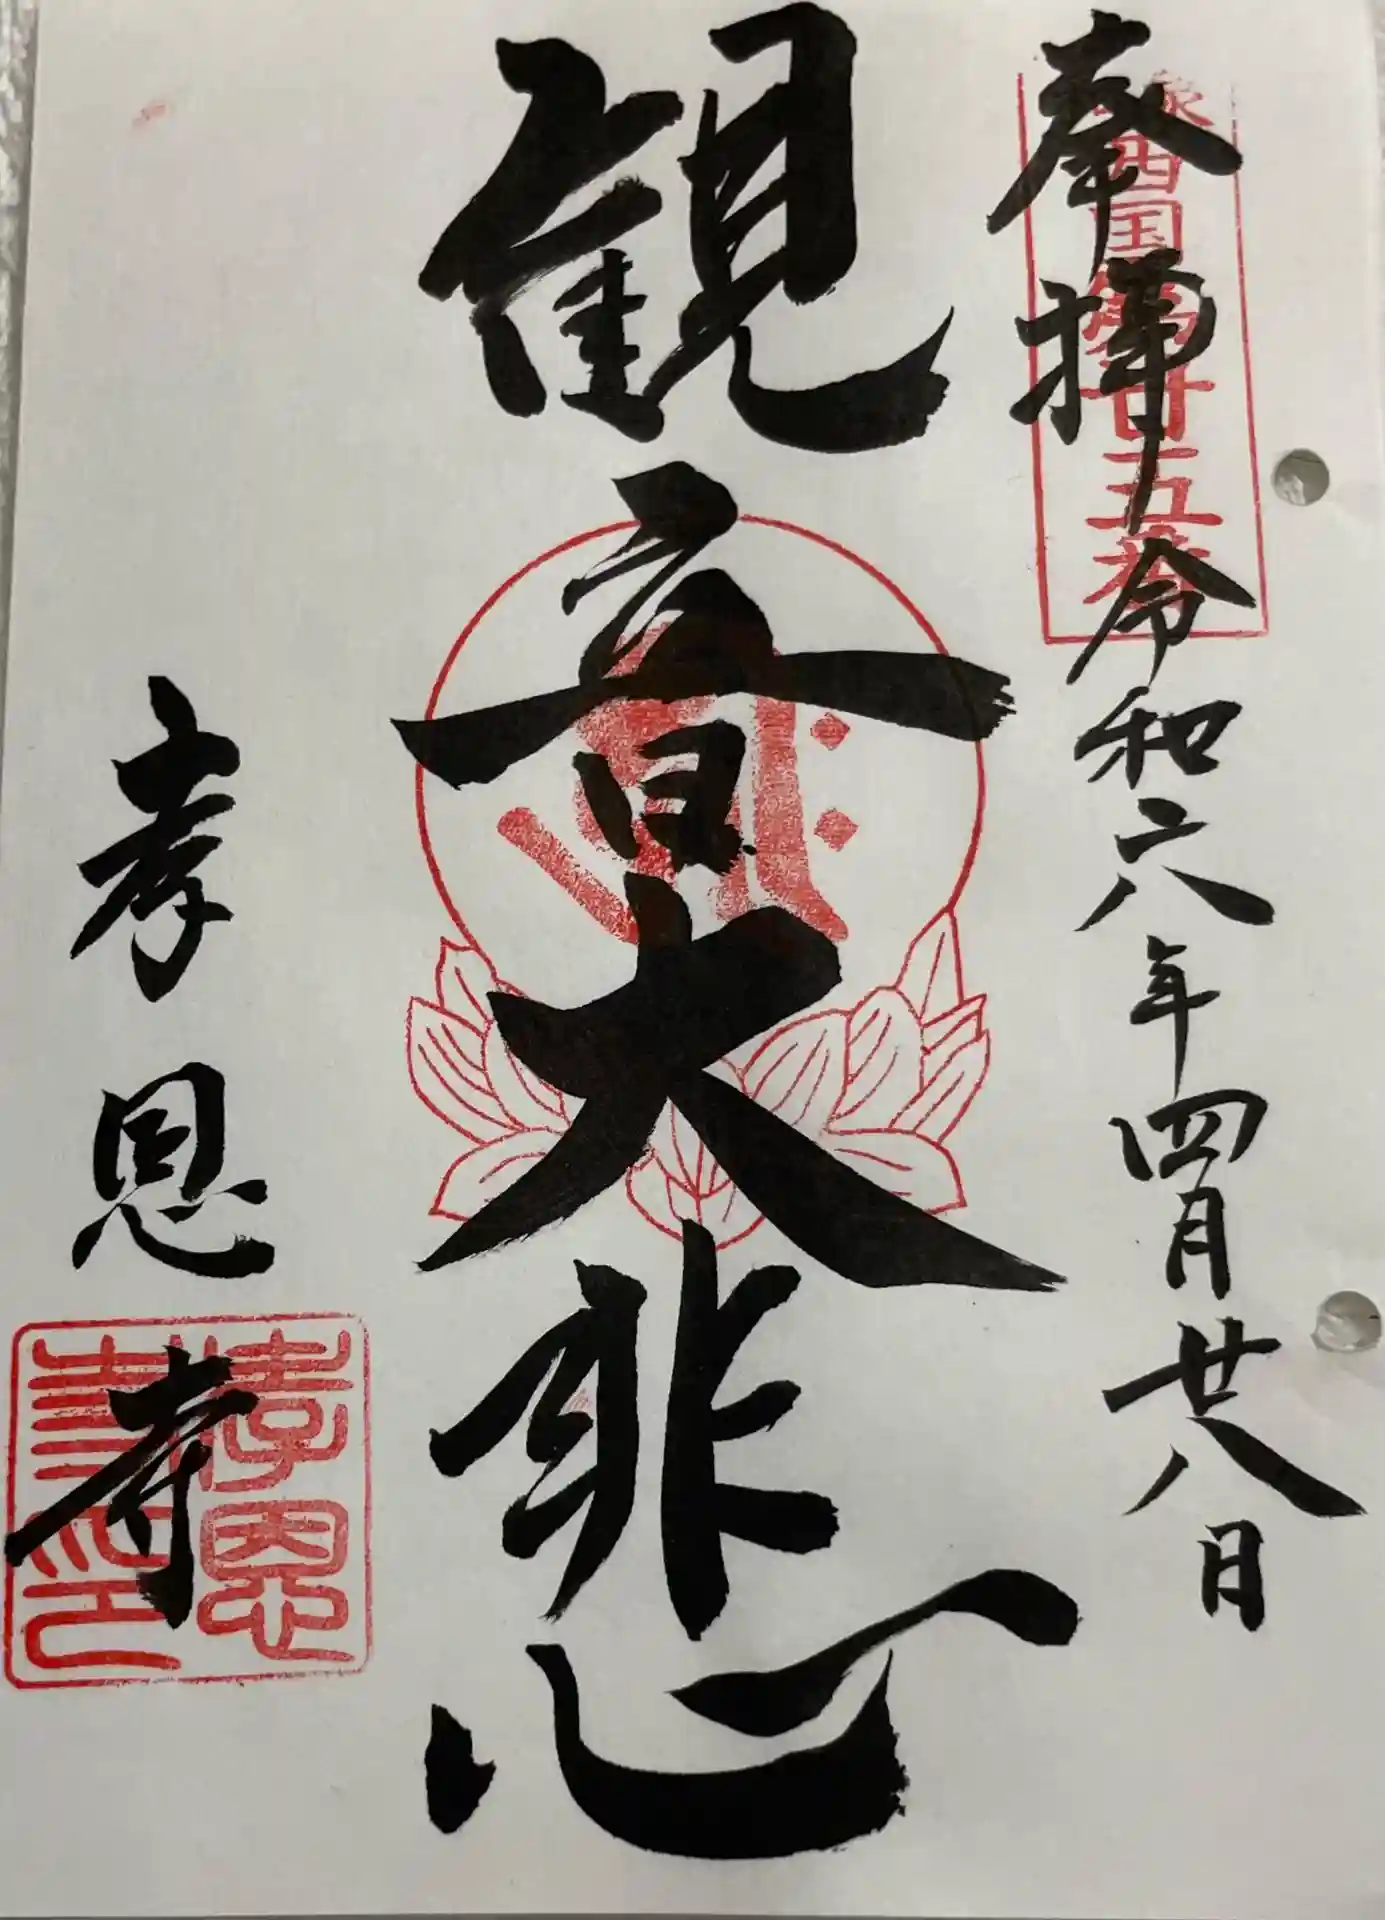 奉拝 令和六年四月廿八日
西国第廿五番
観音大悲心
孝恩寺
孝恩
寺印